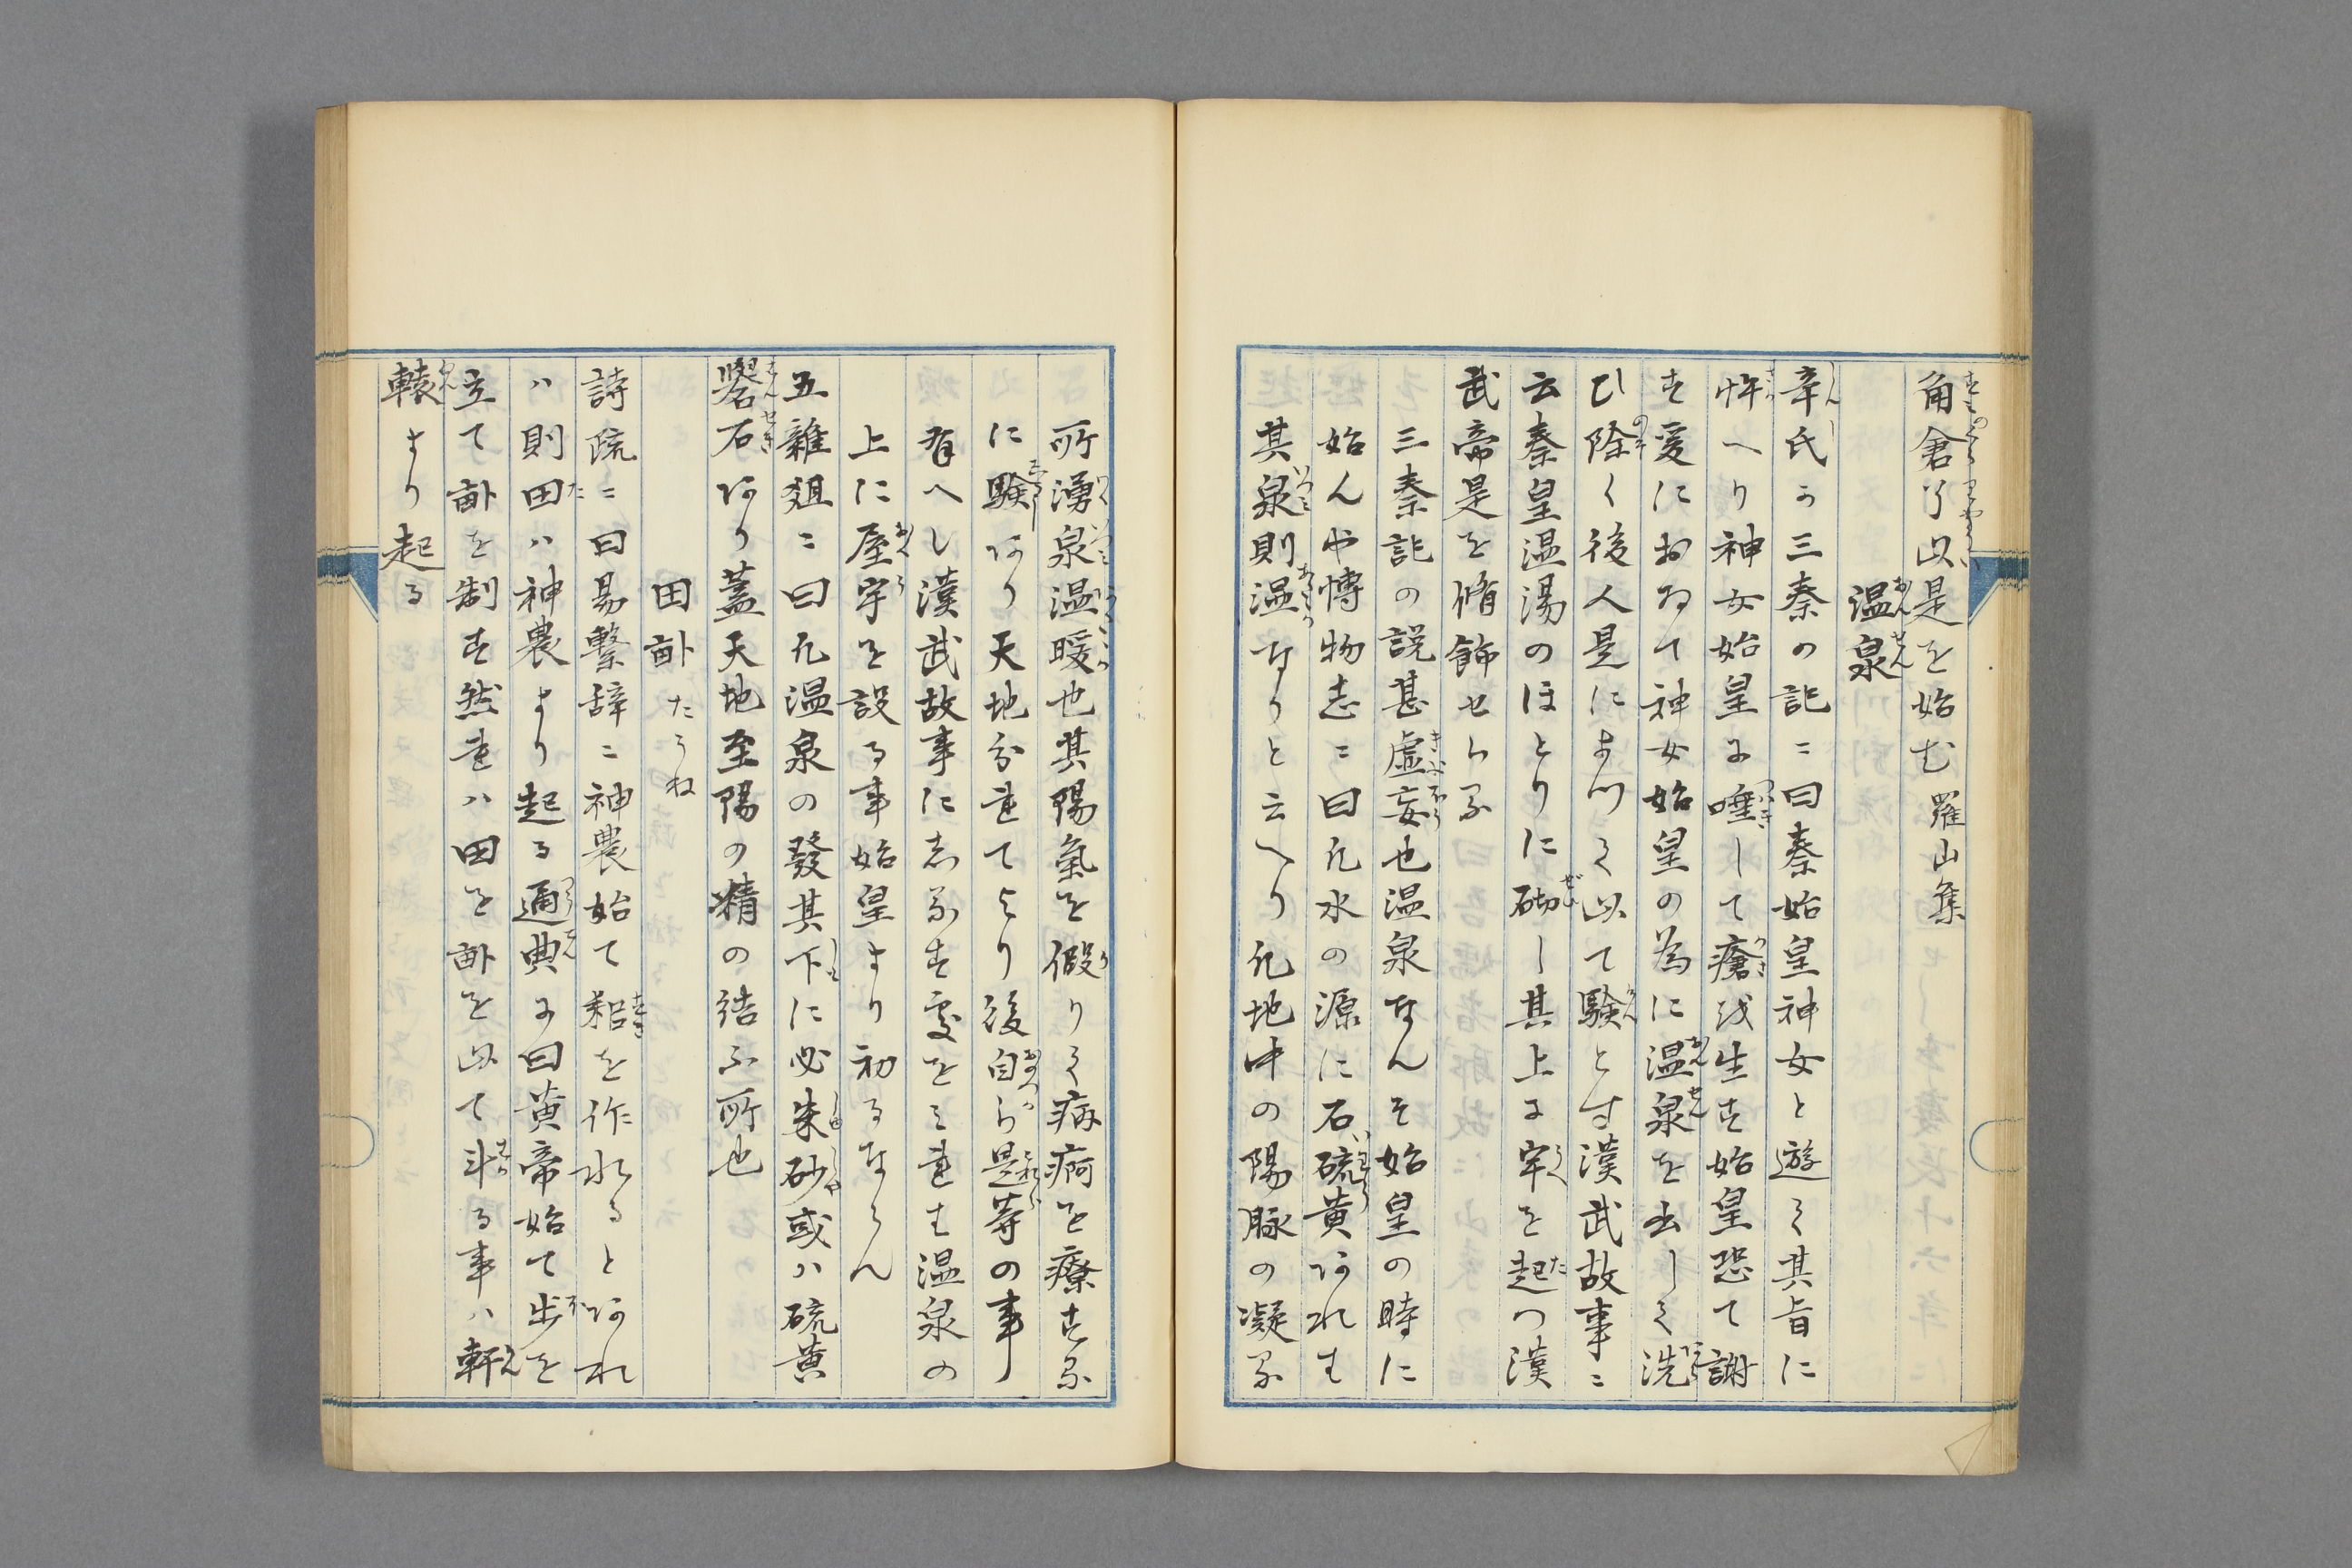 角倉了以是を始む 羅山集
温泉
辛氏か三秦の記ニ曰秦始皇神女と遊て其旨に
忤へり神女始皇に唾して瘡を生す始皇恐て謝
す爰におゐて神女始皇の為に温泉を出して洗
ひ除く後人是によつて以て験とす漢武故事ニ
云秦皇温湯のほとりに砌し其上に宇を起つ漢
武帝是を脩飾せらる
三秦記の説甚虚妄也温泉なんそ始皇の時に
始んや博物志ニ曰凡水の源に石硫黄あれは
其泉則温なりと云へり凡地中の陽脉の凝る
所湧泉温暖也其陽氣を假りて病痾を療する
に験あり天地分れてより後自ら是等の事
有へし漢武故事にしるす處をみれは温泉の
上に屋宇を設る事始皇より初るならん
五雜爼ニ曰凡温泉の發其下に必朱砂或ハ硫黄
礜石あり蓋天地至陽の精の結ふ所也
田畝 たうね
詩疏ニ曰易繋辞ニ神農始て耜を作れるとあれ
ハ則田ハ神農より起る通典に曰黄帝始て歩を
立て畝を制す然れハ田を畝を以て斗る事ハ軒
轅より起る